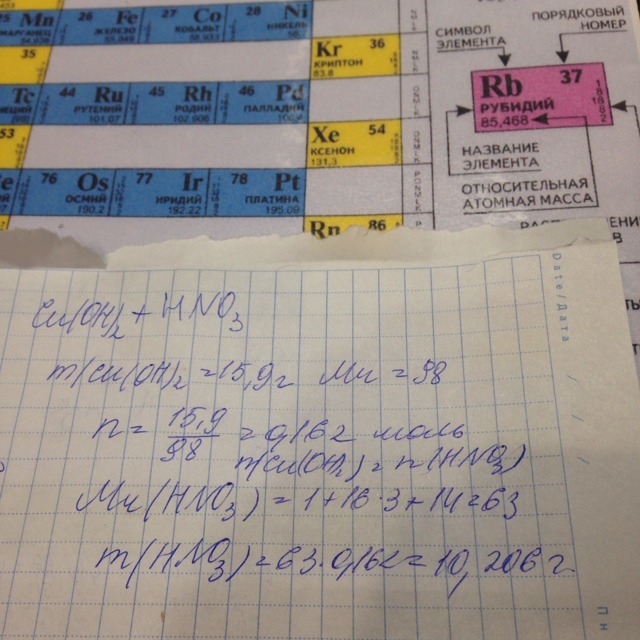 25 Mn 26 Fe 27 Co 28 Ni
ЖЕЛЕЗО КОБАЛЬТ НИКЕЛЬ
35
Kr 36
КРИПТОН
83,8
44 Ru 45 Rh 46 Pd
РУТЕНИЙ РОДИЙ ПАЛЛАДИЙ
101.07 102.906
53
Xe 54
КСЕНОН
131,3
76 Os 77 Ir 78 Pt
ОСМИЙ ИРИДИЙ ПЛАТИНА
190.2 192.22 195.09
Rn 86
СИМВОЛ
ЭЛЕМЕНТА
ПОРЯДКОВЫЙ
НОМЕР
Rb 37
РУБИДИЙ
85,468
НАЗВАНИЕ
ЭЛЕМЕНТА
ОТНОСИТЕЛЬНАЯ
АТОМНАЯ МАССА
Date/Дата
Cu(OH)2 + HNO3
m(Cu(OH)2 = 15,9 г Mr = 98
n = 15,9/98 = 0,162 моль
n(Cu(OH2) = n(HNO3)
Mr(HNO3) = 1+16·3+14=63
m(HNO3) = 63·0,162 = 10,206 г
Пн